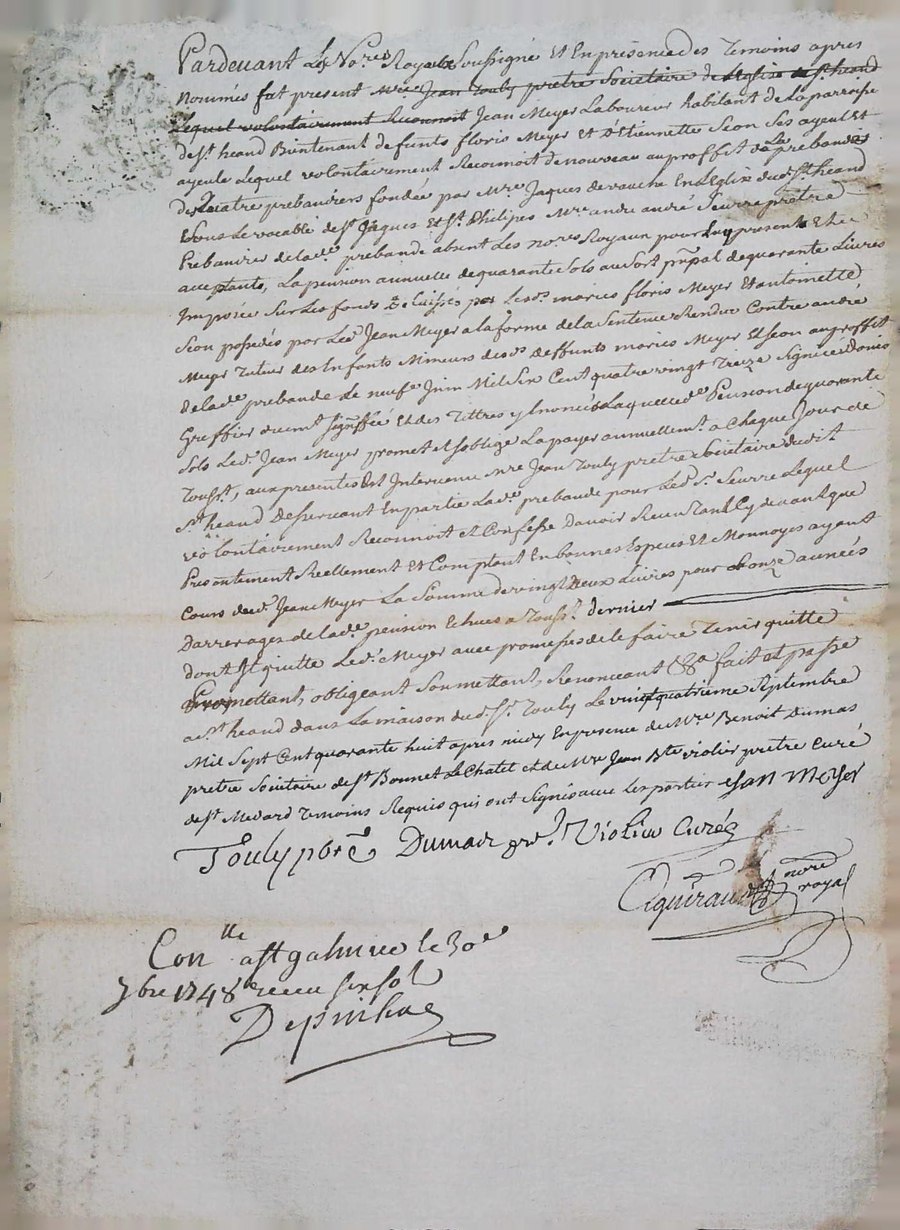 Pardevant Les No.res Royaux Soussigné Et En présence des Temoins apres
Nommés fut present Mre Jean Touly prêtre Sociétaire de L'Eglise de St heand
Lequel volontairement Reconnoit Jean Meyer Laboureur habitant de La parroisse
de St. heand Bientenant defunts floris Meyer Et D'Etiennette Seon Ses ayeul Et
ayeule Lequel volontairement Reconnoit de nouveau au proffit de La prebande
des Quatre prebandiers fondée par Mre Jaques devauche En L'Eglise dud. St heand
Sous Le vocable de St Jaques Et St. Philipes Mre andré Seurre prêtre
Prebandier de lad.e prebande absent Les nores Royaux pour Luy present Et
acceptants, La pension annuelle de quarante Sols au Sort prpal de quarante Livres
Imposée Sur Les fonds Delaissés par Lesds. maries floris Meyer Et antoinette
Seon possedés par Led. Jean Meyer a la forme de la Sentence Rendue Contre andré
Meyer Tuteur des Enfants Mineurs desds. Deffunts maries Meyer Et Seon au proffit
de lad.e prebande Le neufe Juin Mil Six Cent quatre vingt Treize Signée
Greffier duemt Signiffiée Et des Tittres y Enoncés Laquelle de. Pension de quarante
Sols Led. Jean Meyer promet et Soblige La payer annuellemt. a Chaque Jour de
Tousst., aux presentes Est Intervenu Mre Jean Touly prêtre Sociétaire dudit
St. heand Desservant En partie Lad.e prebande pour Led. Sr. Seurre Lequel
volontairement Reconnoit et Confesse D'avoir Receu Tant Cy devant que
Presentement Reellement Et Comptant En bonnes Especes Et Monnoyes ayant
Cours dud. Jean Meyer La Somme de vingt deux Livres pour onze années
Darrerages de lad.e pension Echues a Touss.t dernier
dont Il quitte Led. Meyer avec promesses de le faire Tenir quitte
Promettant, obligeant Soumettant, Renonceant &a fait et passé
a St. heand dans La maison dud. Sr. Touly Le vingtquatrieme Septembre
Mil Sept Cent quarante huit apres midy En presence de Mre Benoit Dumas
prêtre Sociétaire de St Bonnet Le Chatel et de Mre Jean Bte violier prêtre Curé
de St Medard Temoins Requis qui ont Signés avec Les parties Jean Meyer
Touly pbre Dumas pre. Violier Curé
notre
royal
Conlle a St galmier le 30e
7bre 1748 receu six sol